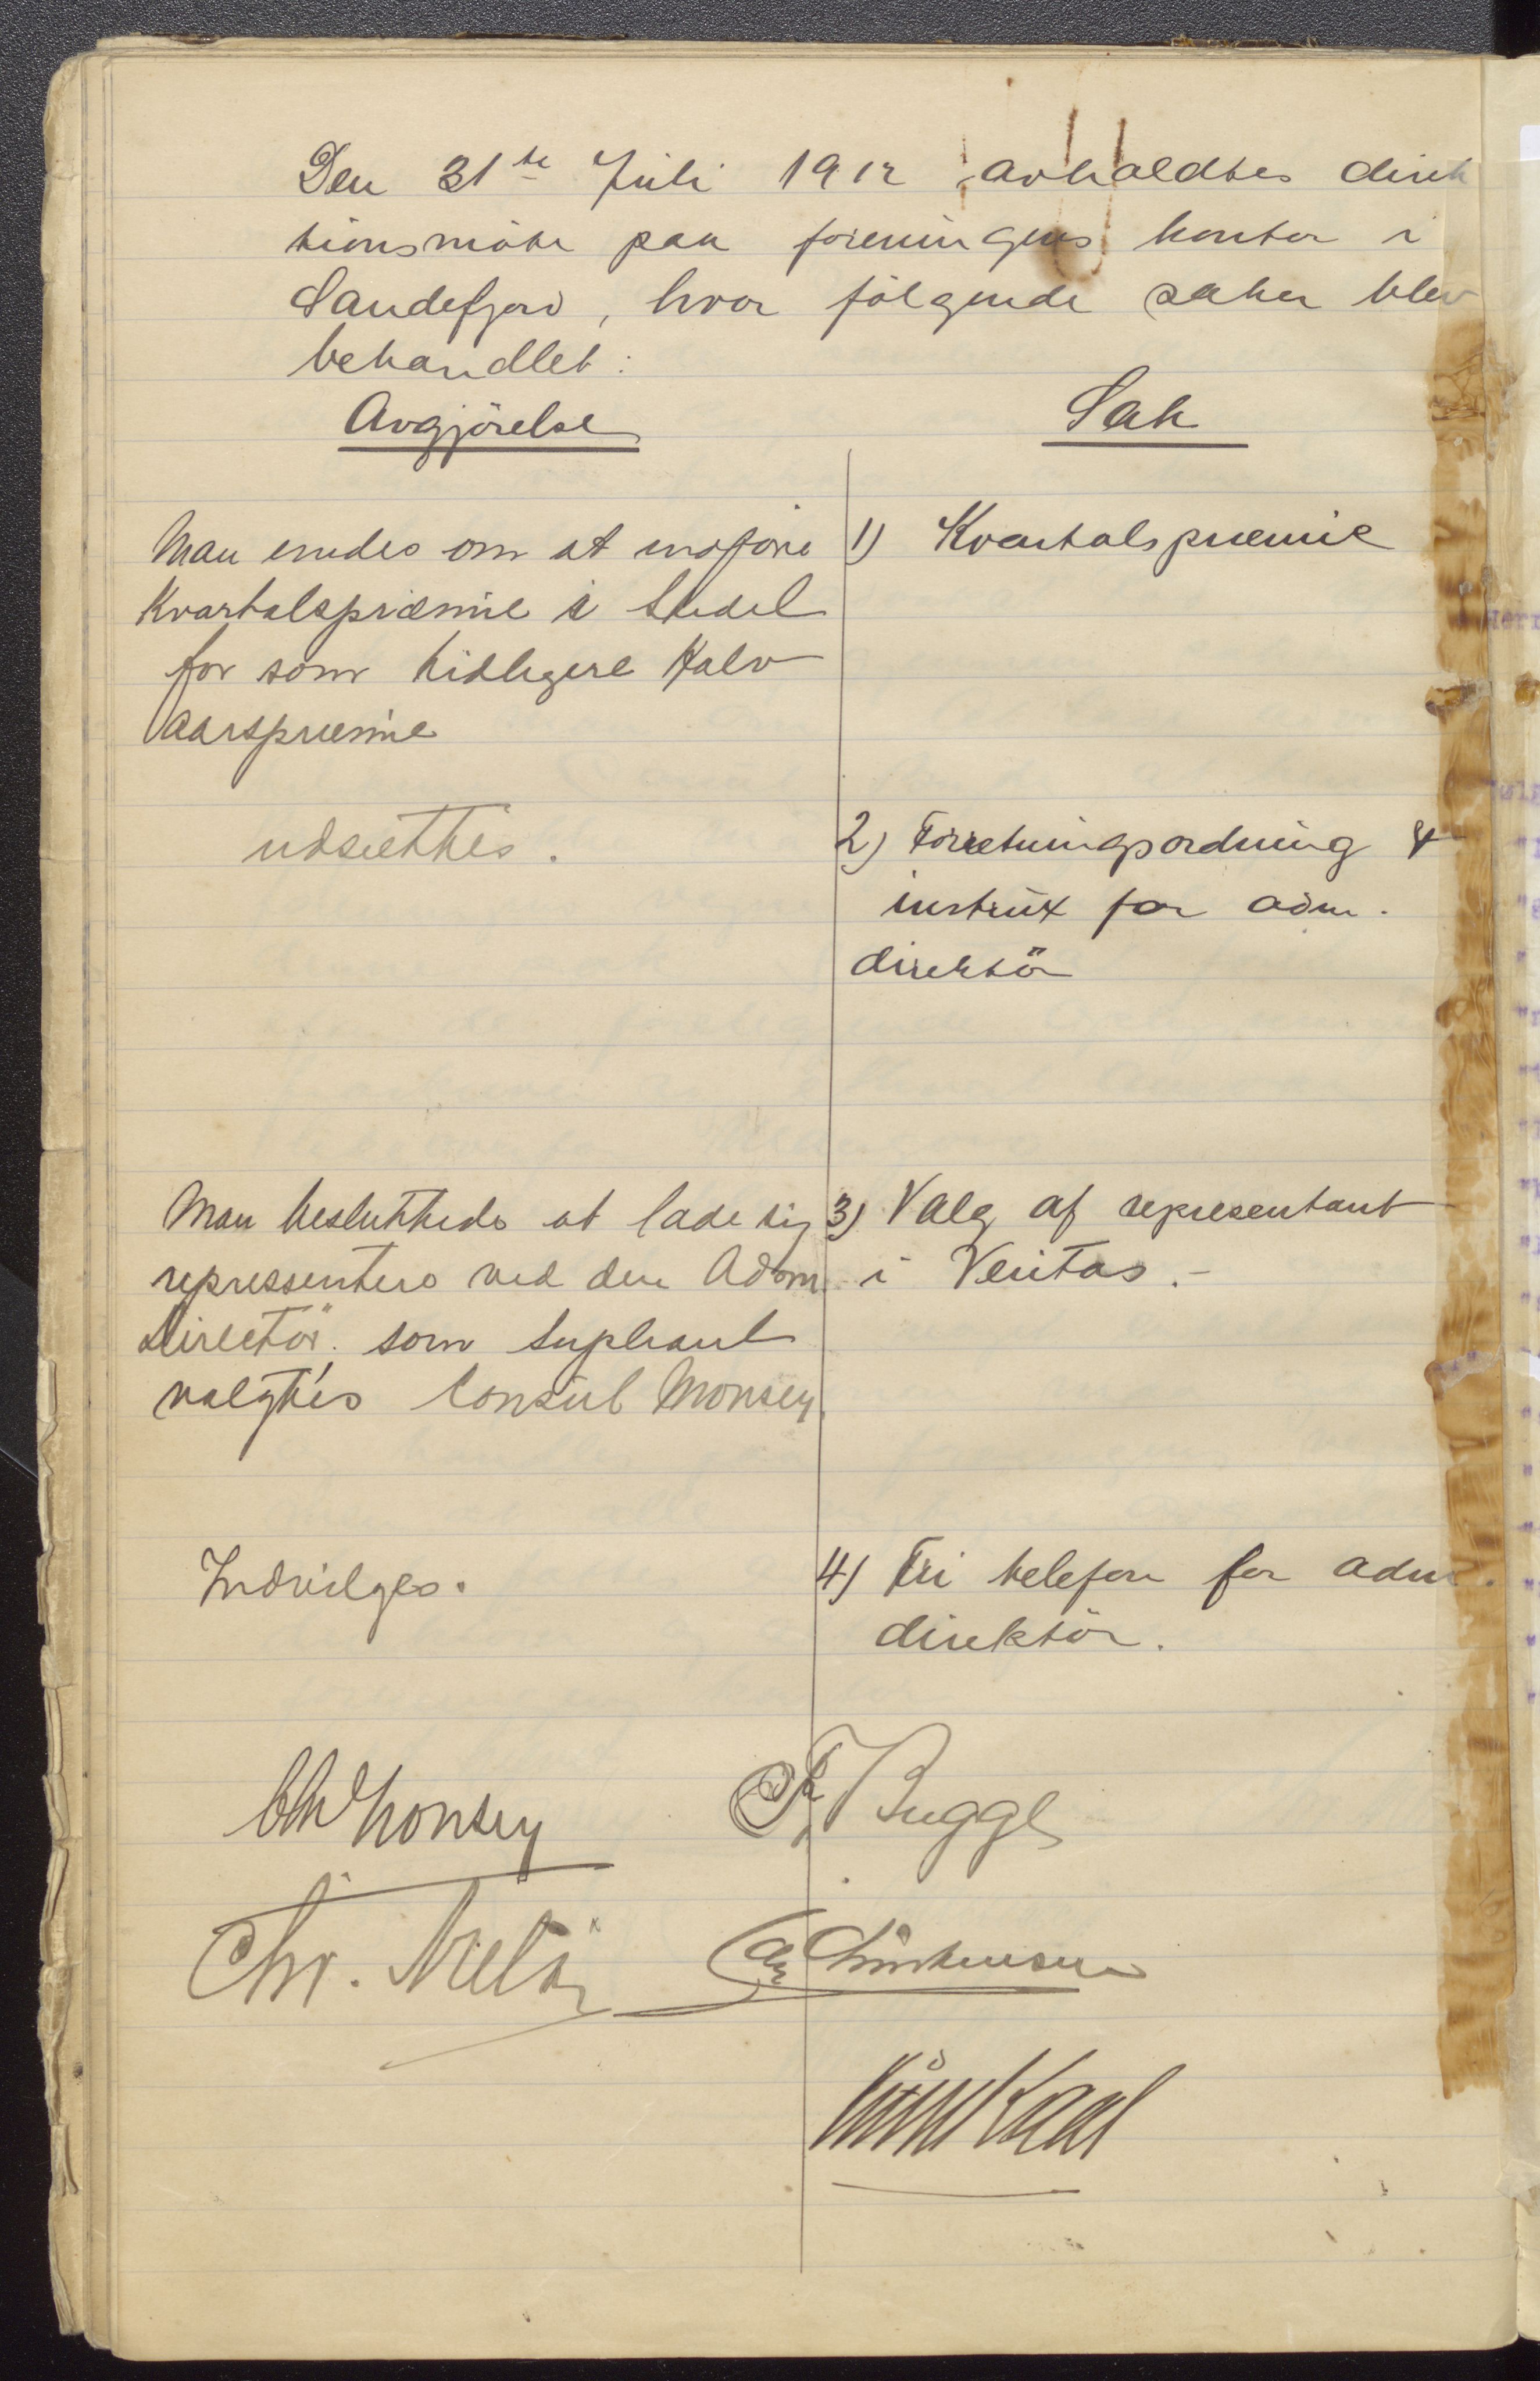 Den 31te Juli 1912 avholdtes direk
tionsmöte paa foreningens kontor i
Sandefjord, hvor fölgende saker blev
behandlet:
Avgjörelse
Sak
Man enedes om at indföre
Kvartalspræmie i Stedet
for som tidligere Halv
Aarspræmie
1) Kvartalspræmie
udsættes.
2) Forretningsordning &
instrux for adm.
direktör
Man besluttede at lade sig
repressentere ved den Adm.
Direktör. som Supleant
valgtes Consul Monsen.
3) Valg af representant
i Veritas.-
Indvilges.
4) Fri telefon for adm.
direktör.
Chr Monsen
Fr. Bugge
Chr. Nielsen
Chr Christensen